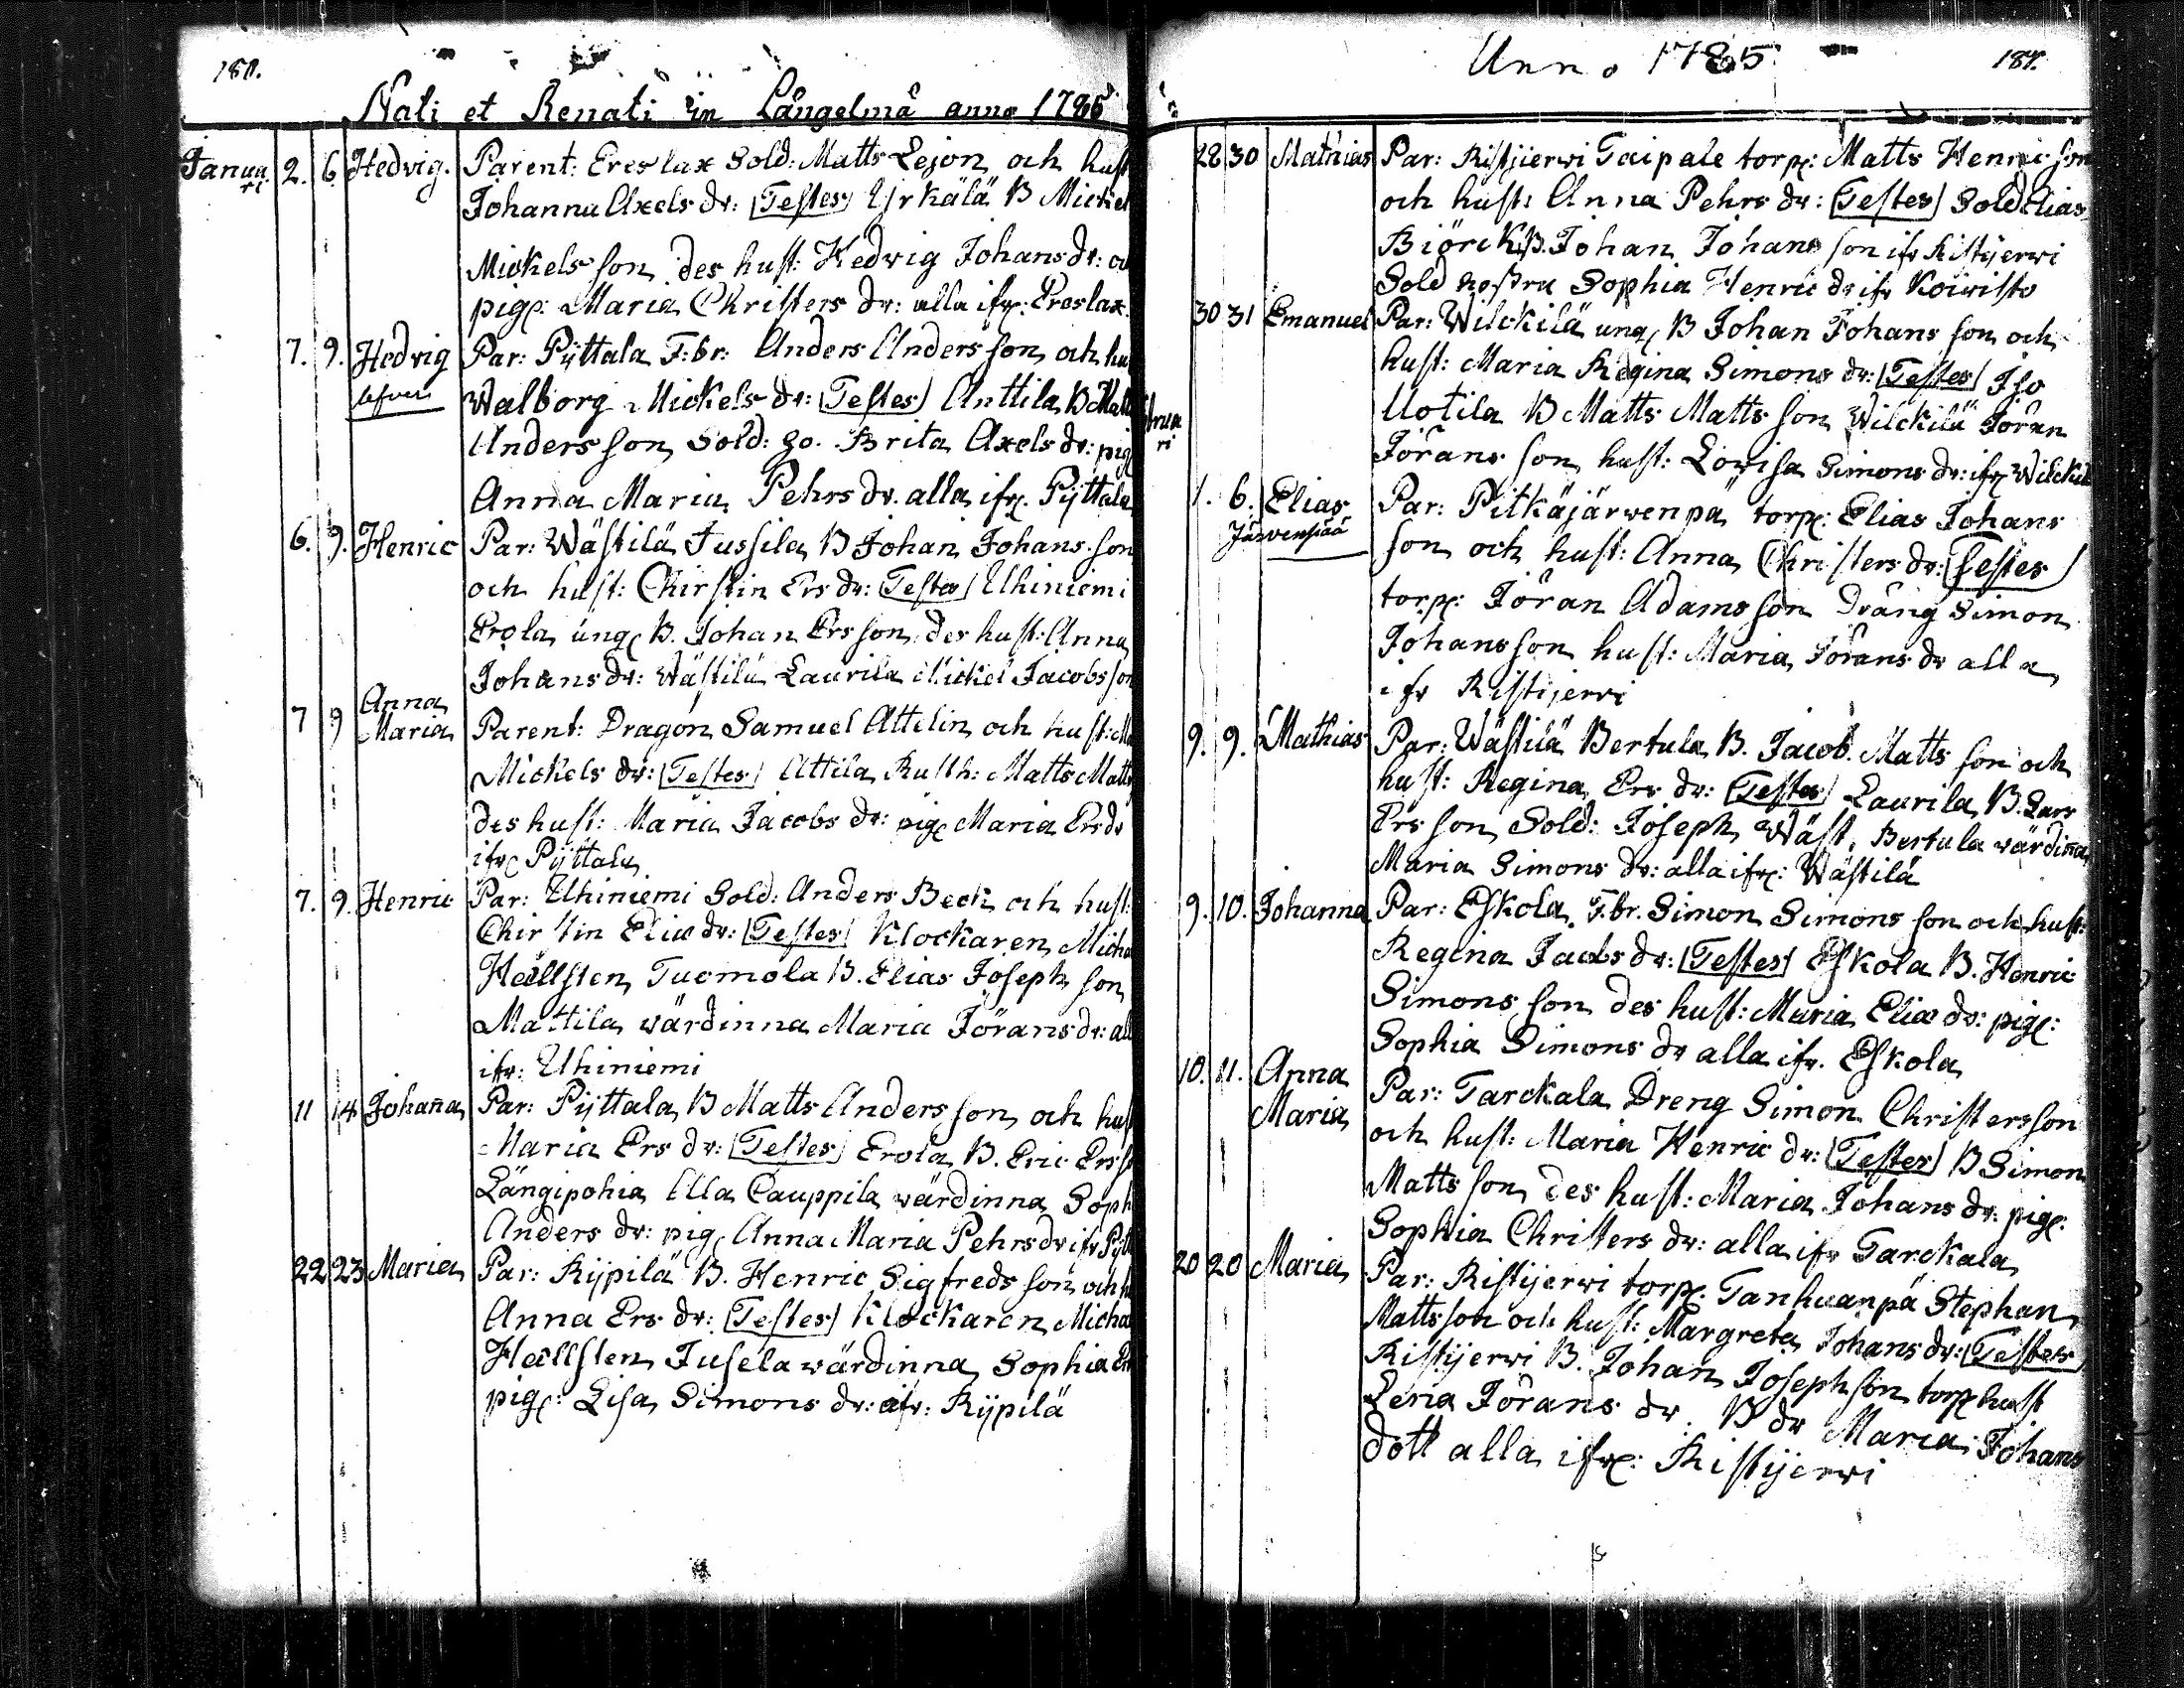 180.
Nati et Renati in Längelmä anno 1785
Janua
ri
2. 6 Hedvig. Parent: Eres lax Sold: Matts Lejon och hust
Johanna Axels dr: Testes Yrkälä B Mickel
Mickels son des hust: Hedvig Johans dr: oc
pig: Maria Christers dr: alla ifr: Eres lax.
7. 9. Hedvig Par: Pÿttala F:br: Anders Anders son och hu
Walborg Mickels dr: Testes Anttila B Matts
Anders son Sold: Brita Axels dr: pig
Anna Maria Pehrs dr. alla ifr. Pÿttala
6. 9. Henric Par: Wästilä Jussila B Johan Johans son
och hust: Chirstin Ers dr: Testes Uhiniemi
Erola ung B. Johan Ers son des hust: Anna
Johans dr: Wästilä Laurila Mickel Jacobs son
7 9 Anna
Maria Parent: Dragon Samuel Attelin och hust: Ma
Mickels dr: Testes Attila Rusth: Matts Matts
des hust: Maria Jacobs dr: pig Maria Ers dr
ifr Pÿttala
7. 9. Henric Par: Uhiniemi Sold: Anders Beck och hust:
Chirstin Eliæ dr: Testes Klockaren Micha
Hællsten Tuomola B. Elias Joseph son
Mattila wärdinna Maria Jörans dr: all
ifr: Uhiniemi
11 14 Johan̄a Par: Pÿttala B Matts Anders son och hus
Maria Ers dr: Testes Erola B. Eric Ers s
Längipohia Ella Cauppila wärdinna Soph
Anders dr: pig Anna Maria Pehrs dr ifr Pÿtt
22 23 Maria Par: Rÿpilä B. Henric Sigfreds son och h
Anna Ers dr: Testes Klockaren Micha
Hællsten Jusela wärdinna Sophia Er
pig: Lisa Simons dr: ifr: Rÿpilä
Anno 1785
181.
28 30 Mathias Par: Ristijerwi Taipale torp: Matts Henric son
och hust: Anna Pehrs dr: Testes Sold Elias
Biörck B. Johan Johans son ifr Ristijerwi
Sold Sophia Henric dr ifr Koiwisto
30 31 Emanuel Par: Wilckilä ung B Johan Johans son och
hust: Maria Regina Simons dr: Testes Iso
Uotila B Matts Matts son Wilckilä Jöran
Jörans son hust: Lowisa Simons dr: ifr Wilckil
brua
ri
1. 6. Elias Par: Pitkäjärwenpä torp: Elias Johans
Järvenpää
son och hust: Anna Christers dr: Testes
torp: Jöran Adams son Dräng Simon
Johans son hust: Maria Jörans dr alla
ifr Ristijerwi
9. 9. Mathias Par: Wästilä Bertula B. Jacob Matts son och
hust: Regina Ers dr: Testes Laurila B. Lars
Ers son Sold: Joseph Wäst. Bertula wärdin̄a
Maria Simons dr: alla ifr: Wästilä
9. 10. Johanna Par: Eskola F.br. Simon Simons son och hust:
Regina Jacobs dr: Testes Eskola B. Henric
Simons son des hust: Maria Eliæ dr: pig:
Sophia Simons dr alla ifr. Eskola
10. 11. Anna
Maria Par: Tarckala Dreng Simon Christers son
och hust: Maria Henric dr: Testes B Simon
Matts son des hust: Maria Johans dr: pig:
Sophia Christers dr: alla ifr Tarckala
20 20 Maria Par: Ristijerwi torp. Tanhuanpä Stephan
Matts son och hust: Margreta Johans dr: Testes
Ristijerwi B. Johan Joseph son torp hust
Lena Jörans dr. B dr Maria Johans
dott alla ifr: Ristijerwi